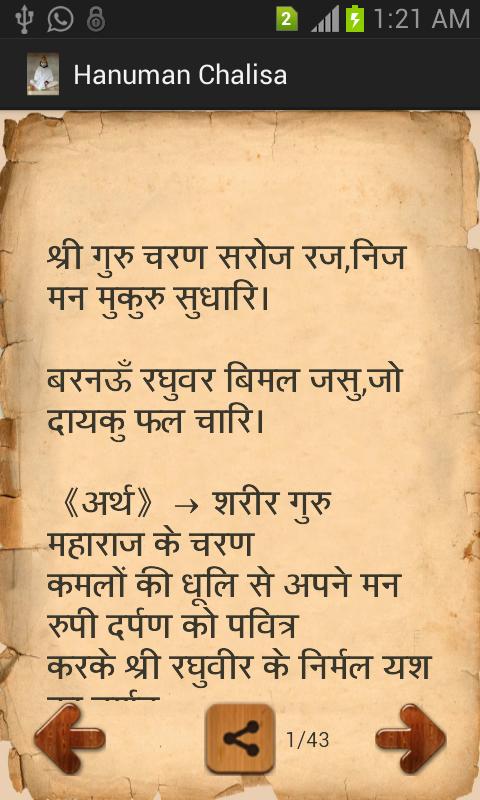 2
1:21 AM
Hanuman Chalisa
श्री गुरु चरण सरोज रज,निज
मन मुकुरु सुधारि।
बरनऊँ रघुवर बिमल जसु,जो
दायकु फल चारि।
《अर्थ》 → शरीर गुरु
महाराज के चरण
कमलों की धूलि से अपने मन
रुपी दर्पण को पवित्र
करके श्री रघुवीर के निर्मल यश
1/43